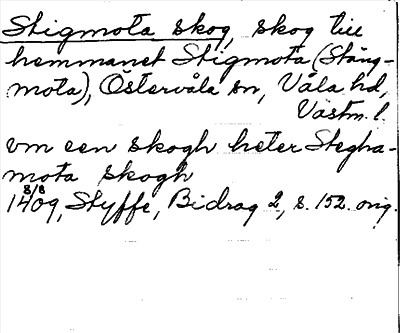 Stigmota skog, skog till
hemmanet Stigmota (Stång-
mota), Östervåla sn, Våla hd,
Västm. l.
vm een skogh heter Stegha-
mota skogh
8/8
1409, Styffe, Bidrag 2, s. 152. orig.